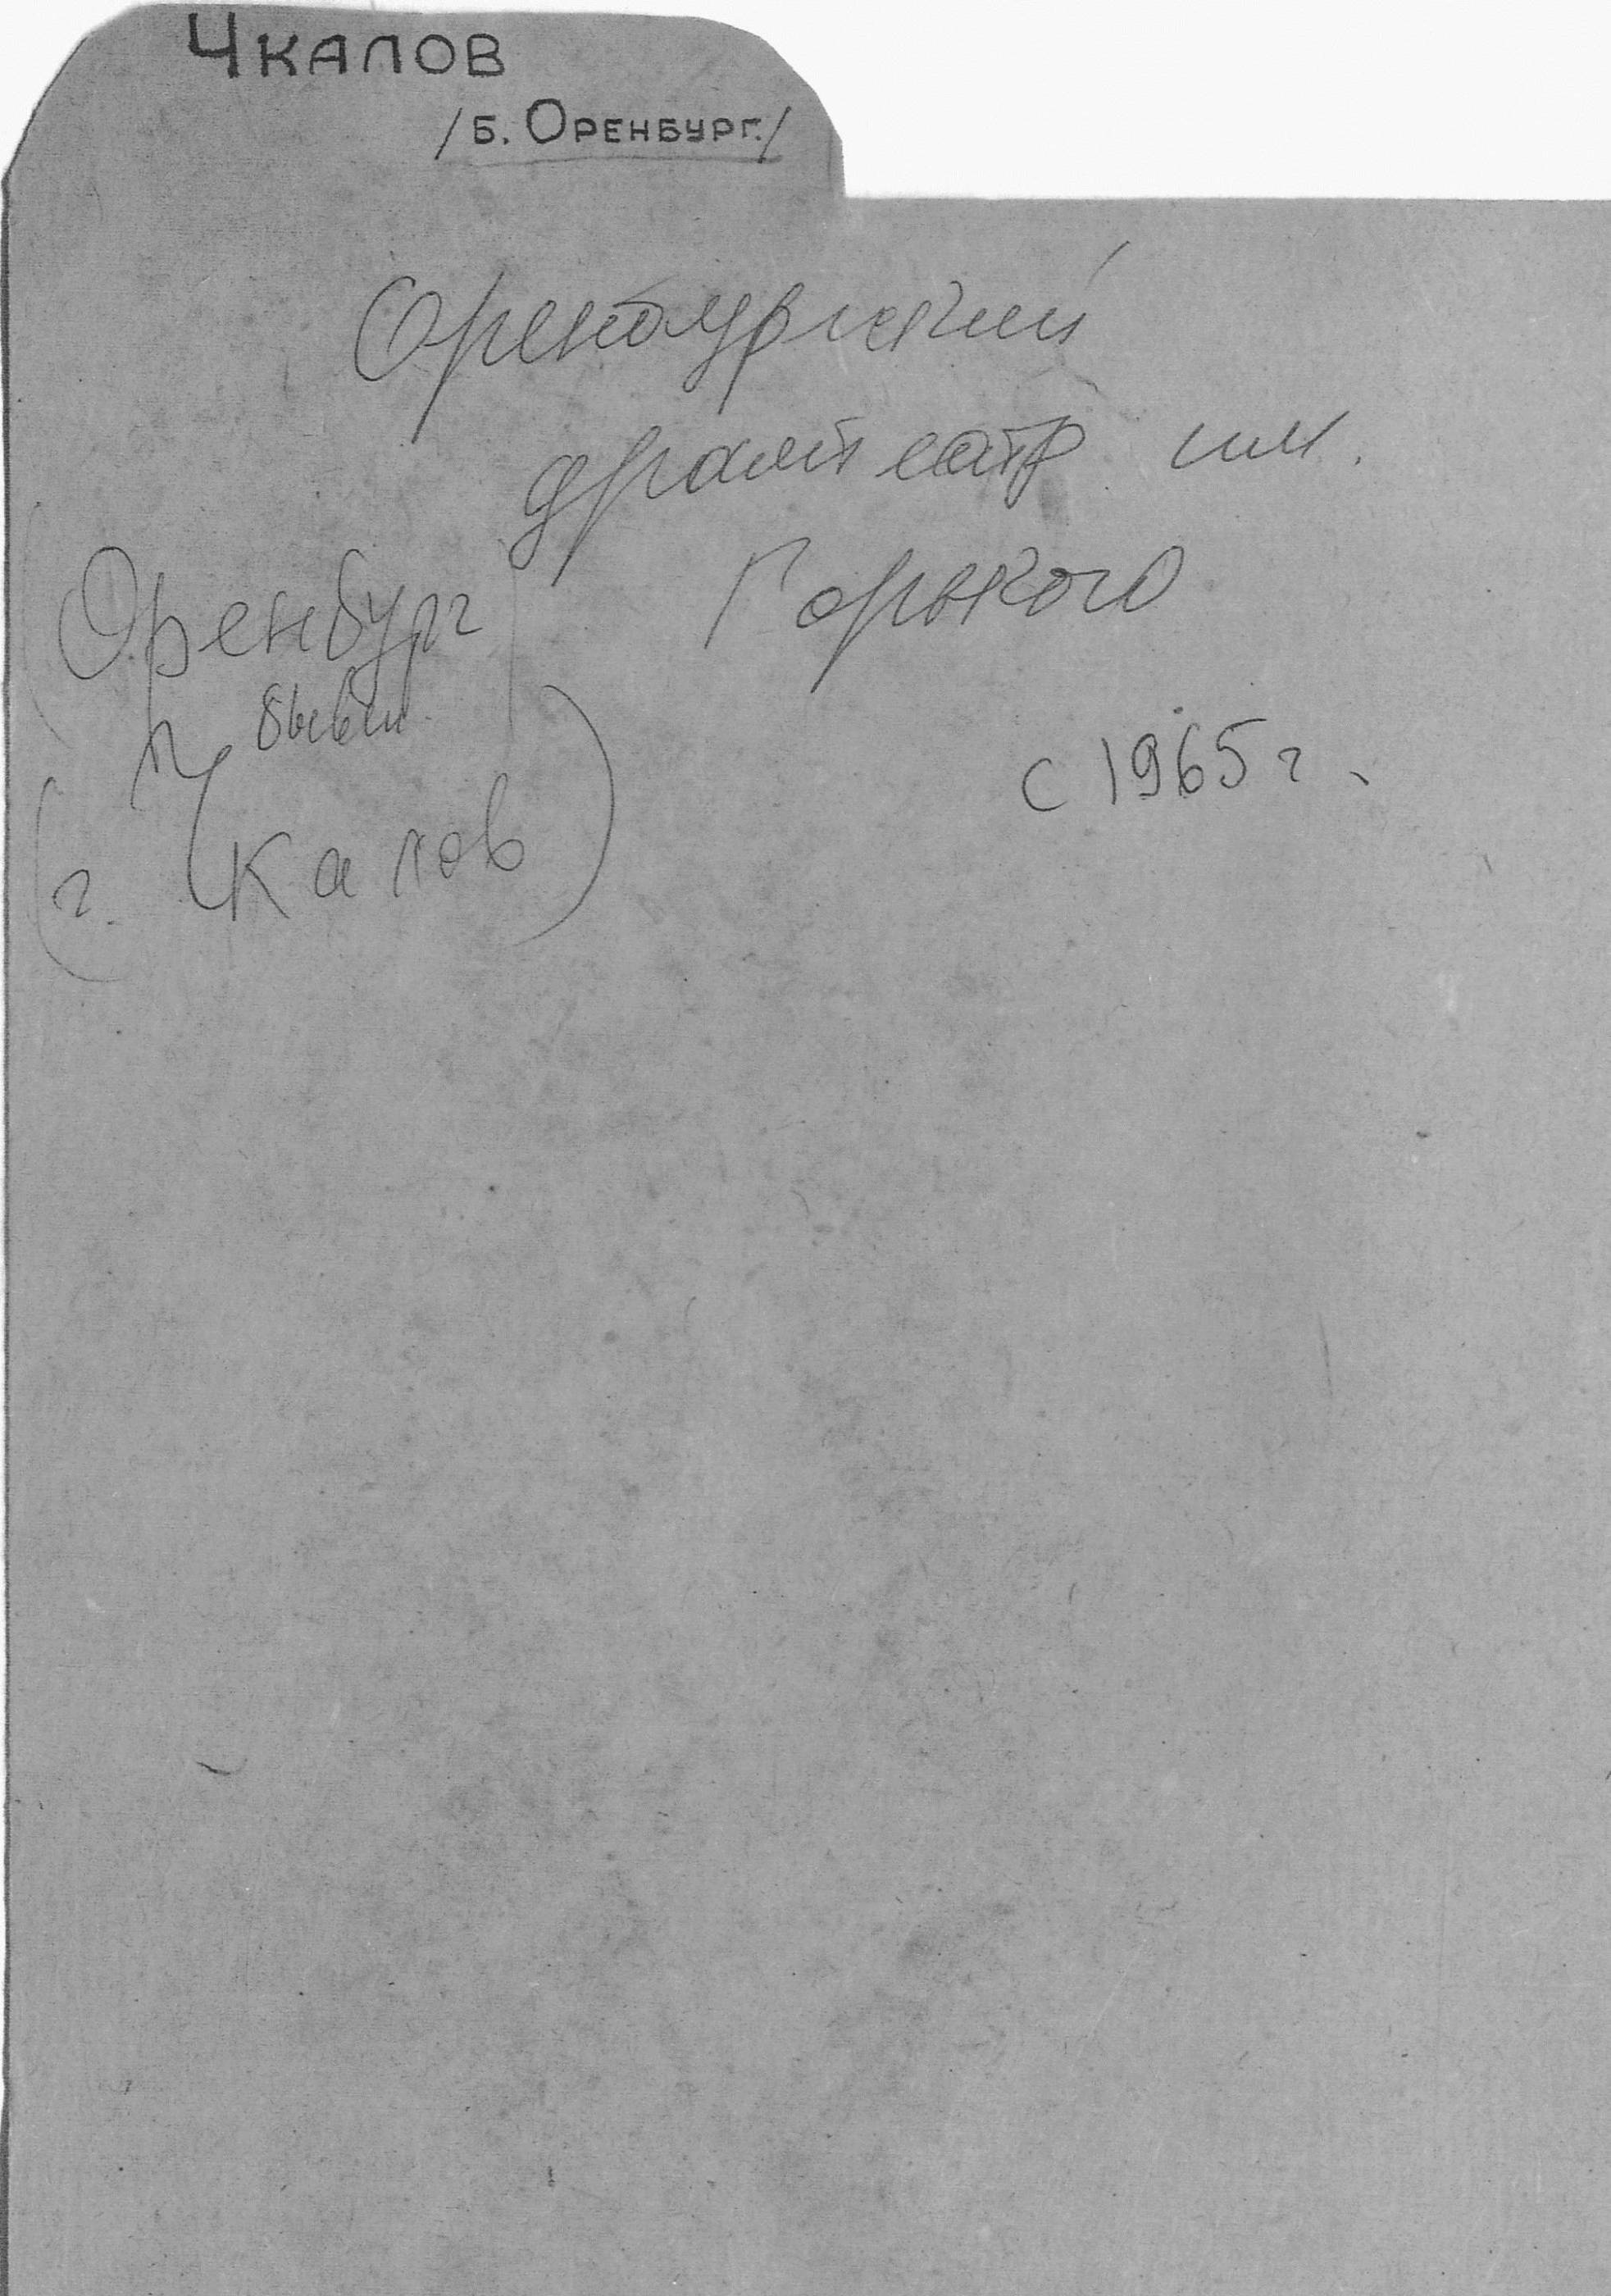 Чкалов
/б. Оренбург./
Оренбургский
драмтеатр им.
Горького
Оренбург
бывш.
(г. Чкалов)
с 1965 г.